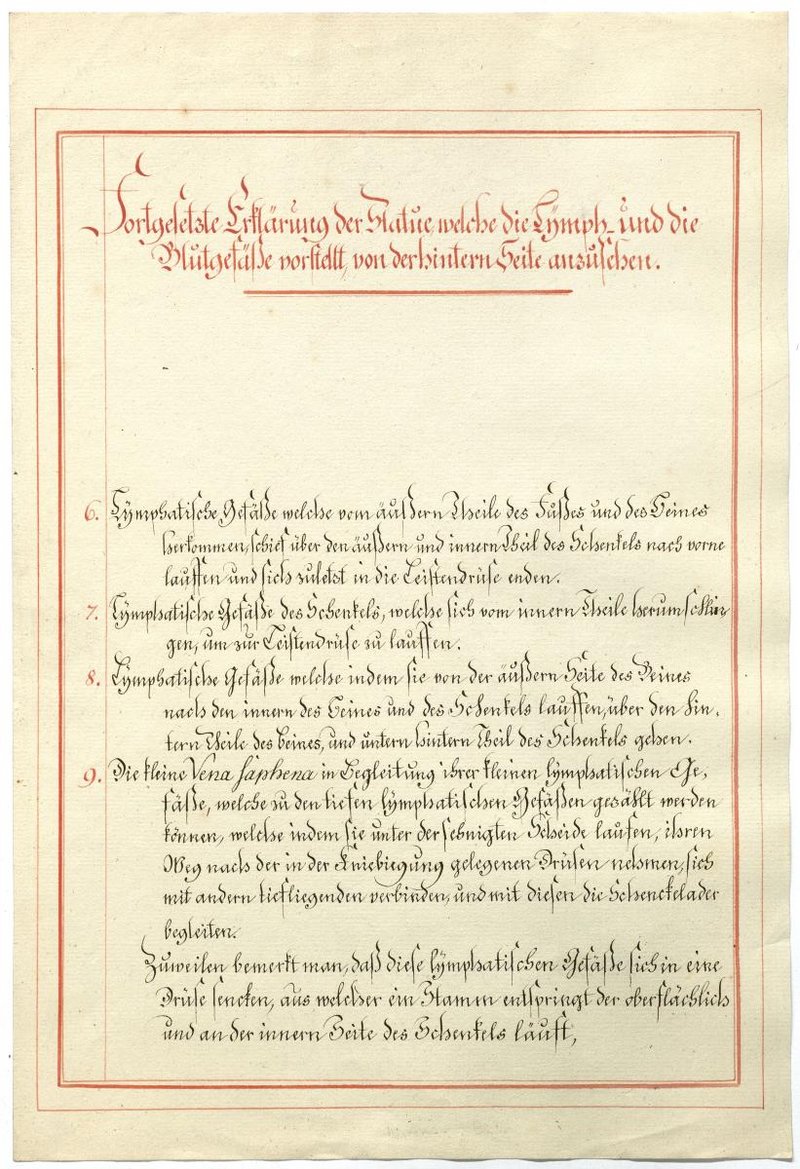 Fortgesetzte Erklärung der Statue, welche die Lÿmph- und die
Blutgefäße vorstellt, von der hintern Seite anzusehen.
6. Lÿmphatische Gefäße welche vom äußern Theile des Fußes und des Beines
herkommen, schief über den äußern und innern Theil des Schenkels nach vorne
lauffen und sich zuletzt in die Leistendrüse enden.
7. Lÿmphatische Gefäße des Schenkels, welche sich vom innern Theile herum schlin-
gen, um zur Leistendrüse zu lauffen.
8. Lÿmphatische Gefäße welche indem sie von der äußern Seite des Beines
nach den innern des Beines und des Schenkels lauffen, über den hin-
tern Theile des Beines, und untern hintern Theil des Schenkels gehen.
9. Die kleine Vena saphena in Begleitung ihrer kleinen lÿmphatischen Ge-
fäße, welche zu den tiefen lÿmphatischen Gefäßen gezählt werden
können, welche indem sie unter der sehnigten Scheide laufen, ihren
Weg nach der in der Kniebiegung gelegenen Drüsen nehmen, sich
mit andern tiefliegenden verbinden, und mit diesen die Schenckelader
begleiten.
Zuweilen bemerkt man, daß diese lÿmphatischen Gefäße sich in eine
Drüse sencken, aus welcher ein Stamm entspringt der oberflächlich
und an der innern Seite des Schenkels läuft,